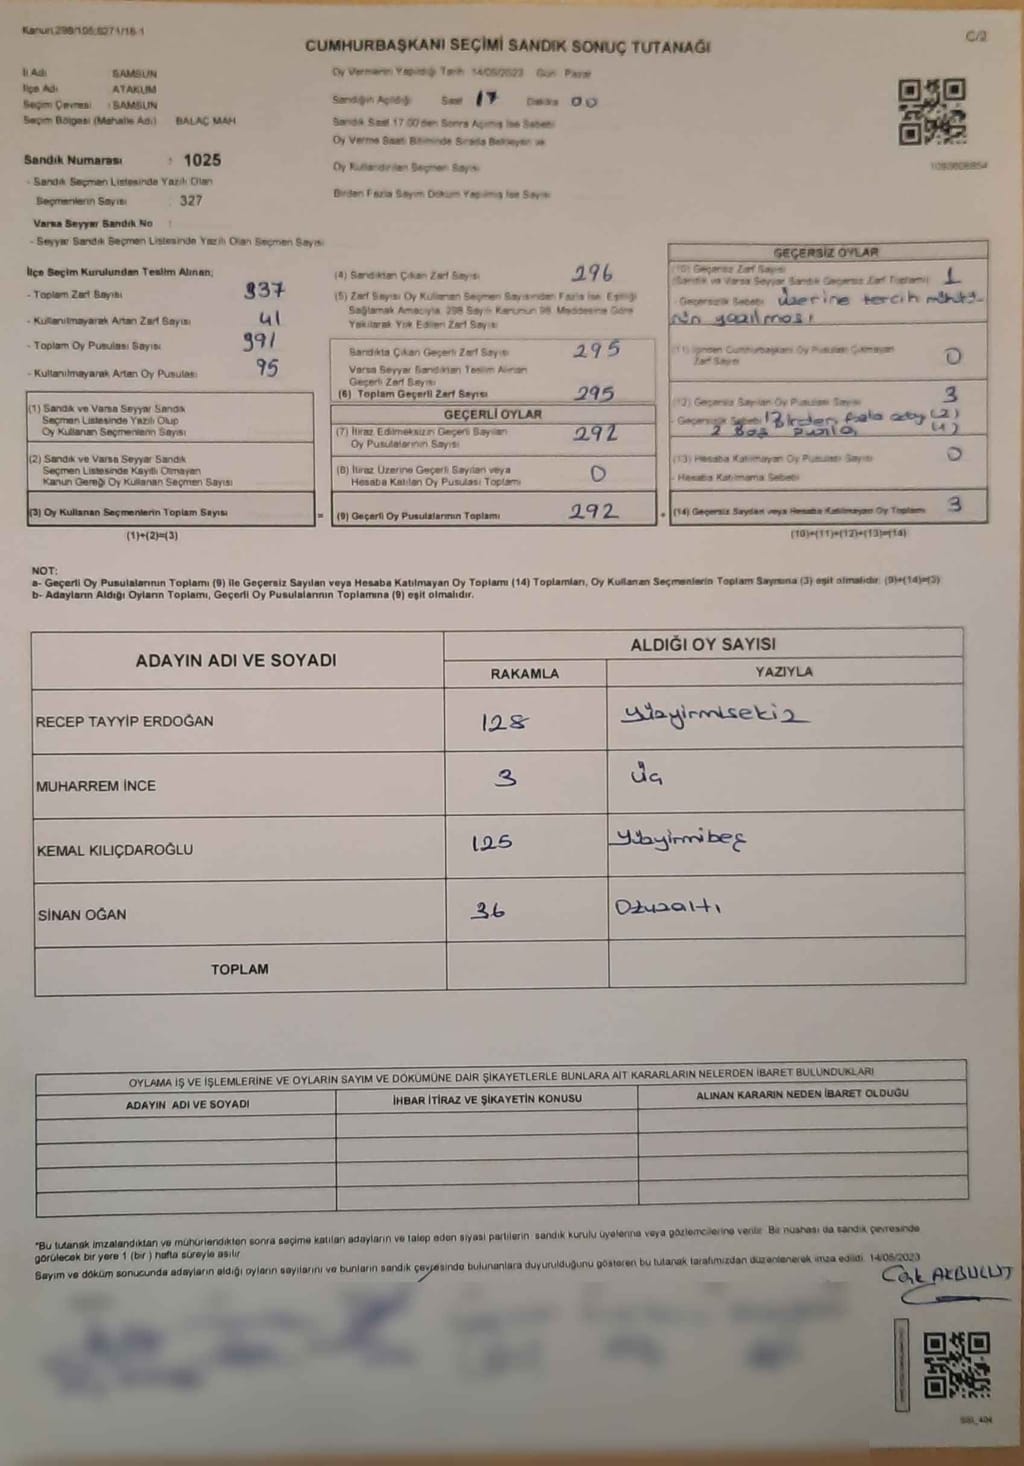 Kanun:298/105;6271/16-1
C/2
CUMHURBAŞKANI SEÇİMİ SANDIK SONUÇ TUTANAĞI
İl Adı SAMSUN
İlçe Adı ATAKUM
Seçim Çevresi : SAMSUN
Seçim Bölgesi (Mahalle Adı) BALAÇ MAH.
Sandık Numarası : 1025
- Sandık Seçmen Listesinde Yazılı Olan
Seçmenlerin Sayısı : 327
Varsa Seyyar Sandık No :
- Seyyar Sandık Seçmen Listesinde Yazılı Olan Seçmen Sayısı
Oy Vermenin Yapıldığı Tarih 14/05/2023 Gün Pazar
Sandığın Açıldığı Saat 17 Dakika 00
Sandık Saat 17.00'den Sonra Açılmış İse Sebebi
Oy Verme Saati Bitiminde Sırada Bekleyen ve
Oy Kullandırılan Seçmen Sayısı
Birden Fazla Sayım Döküm Yapılmış İse Sayısı
İlçe Seçim Kurulundan Teslim Alınan;
- Toplam Zarf Sayısı 337
- Kullanılmayarak Artan Zarf Sayısı 41
- Toplam Oy Pusulası Sayısı 391
- Kullanılmayarak Artan Oy Pusulası 95
(1) Sandık ve Varsa Seyyar Sandık
Seçmen Listesinde Yazılı Olup
Oy Kullanan Seçmenlerin Sayısı
(2) Sandık ve Varsa Seyyar Sandık
Seçmen Listesinde Kayıtlı Olmayan
Kanun Gereği Oy Kullanan Seçmen Sayısı
(3) Oy Kullanan Seçmenlerin Toplam Sayısı =
(1)+(2)=(3)
(4) Sandıktan Çıkan Zarf Sayısı 296
(5) Zarf Sayısı Oy Kullanan Seçmen Sayısından Fazla İse, Eşitliği
Sağlamak Amacıyla, 298 Sayılı Kanunun 98. Maddesine Göre
Yakılarak Yok Edilen Zarf Sayısı
Sandıkta Çıkan Geçerli Zarf Sayısı 295
Varsa Seyyar Sandıktan Teslim Alınan
Geçerli Zarf Sayısı
(6) Toplam Geçerli Zarf Sayısı 295
GEÇERLİ OYLAR
(7) İtiraz Edilmeksizin Geçerli Sayılan
Oy Pusulalarının Sayısı 292
(8) İtiraz Üzerine Geçerli Sayılan veya
Hesaba Katılan Oy Pusulası Toplamı 0
(9) Geçerli Oy Pusulalarının Toplamı 292 +
GEÇERSİZ OYLAR
(10) Geçersiz Zarf Sayısı
(Sandık ve Varsa Seyyar Sandık Geçersiz Zarf Toplamı) 1
- Geçersizlik Sebebi üzerine tercih mührü-
nün yazılması
(11) İçinden Cumhurbaşkanı Oy Pusulası Çıkmayan
Zarf Sayısı 0
(12) Geçersiz Sayılan Oy Pusulası Sayısı 3
- Geçersizlik Sebebi Birden fazla aday (2)
2 Boş pusula (1)
(13) Hesaba Katılmayan Oy Pusulası Sayısı 0
- Hesaba Katılmama Sebebi
(14) Geçersiz Sayılan veya Hesaba Katılmayan Oy Toplamı 3
(10)+(11)+(12)+(13)=(14)
NOT:
a- Geçerli Oy Pusulalarının Toplamı (9) ile Geçersiz Sayılan veya Hesaba Katılmayan Oy Toplamı (14) Toplamları, Oy Kullanan Seçmenlerin Toplam Sayısına (3) eşit olmalıdır. (9)+(14)=(3)
b- Adayların Aldığı Oyların Toplamı, Geçerli Oy Pusulalarının Toplamına (9) eşit olmalıdır.
ADAYIN ADI VE SOYADI ALDIĞI OY SAYISI
RAKAMLA YAZIYLA
RECEP TAYYİP ERDOĞAN 128 Yüzyirmisekiz
MUHARREM İNCE 3 Üç
KEMAL KILIÇDAROĞLU 125 Yüzyirmibeş
SİNAN OĞAN 36 Otuzaltı
TOPLAM
OYLAMA İŞ VE İŞLEMLERİNE VE OYLARIN SAYIM VE DÖKÜMÜNE DAİR ŞİKAYETLERLE BUNLARA AİT KARARLARIN NELERDEN İBARET BULUNDUKLARI
ADAYIN ADI VE SOYADI İHBAR İTİRAZ VE ŞİKAYETİN KONUSU ALINAN KARARIN NEDEN İBARET OLDUĞU
*Bu tutanak imzalandıktan ve mühürlendikten sonra seçime katılan adayların ve talep eden siyasi partilerin sandık kurulu üyelerine veya gözlemcilerine verilir. Bir nüshası da sandık çevresinde
görülecek bir yere 1 (bir ) hafta süreyle asılır.
Sayım ve döküm sonucunda adayların aldığı oyların sayılarını ve bunların sandık çevresinde bulunanlara duyurulduğunu gösteren bu tutanak tarafımızdan düzenlenerek imza edildi. 14/05/2023
AKBULUT